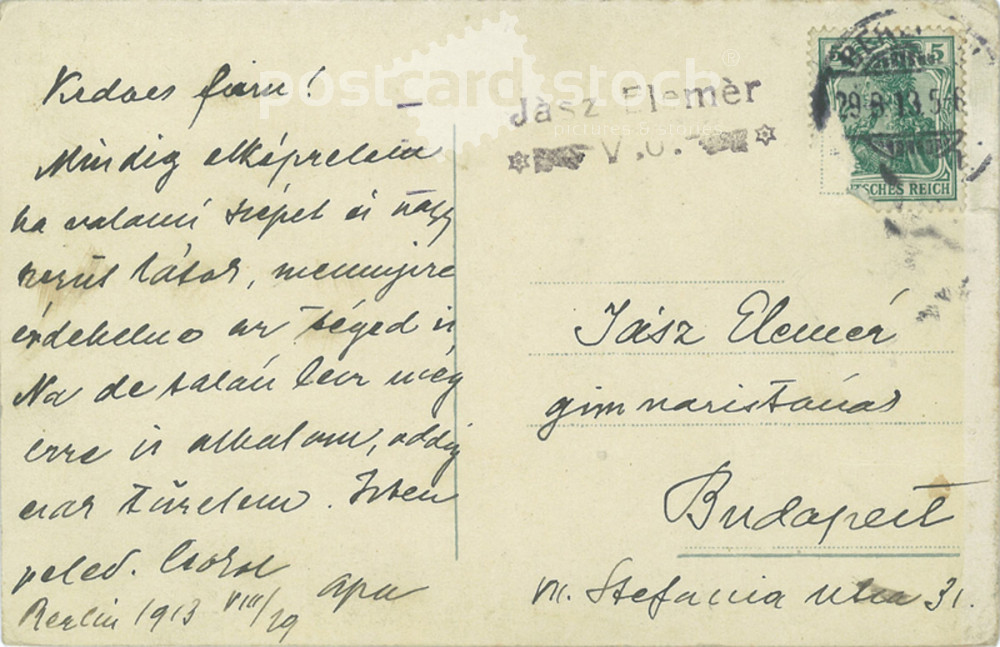 Kedves fiam!
Mindig elképzelem
ha valami szépet és nagy
szerüt látok, mennyire
érdekelne az téged is
Na de talán lesz még
erre is alkalom, addig
csak türelem. Isten
veled. Csókol
apa
Berlin 1913 VIII/29
postcards.stock ®
pictures & stories
Jàsz Elemèr
V.o.
BERLIN
29.8.13.5-6
5 5
TSCHES REICH
Jász Elemér
gimnazista úrnak
Budapest
VII. Stefania utca 31.